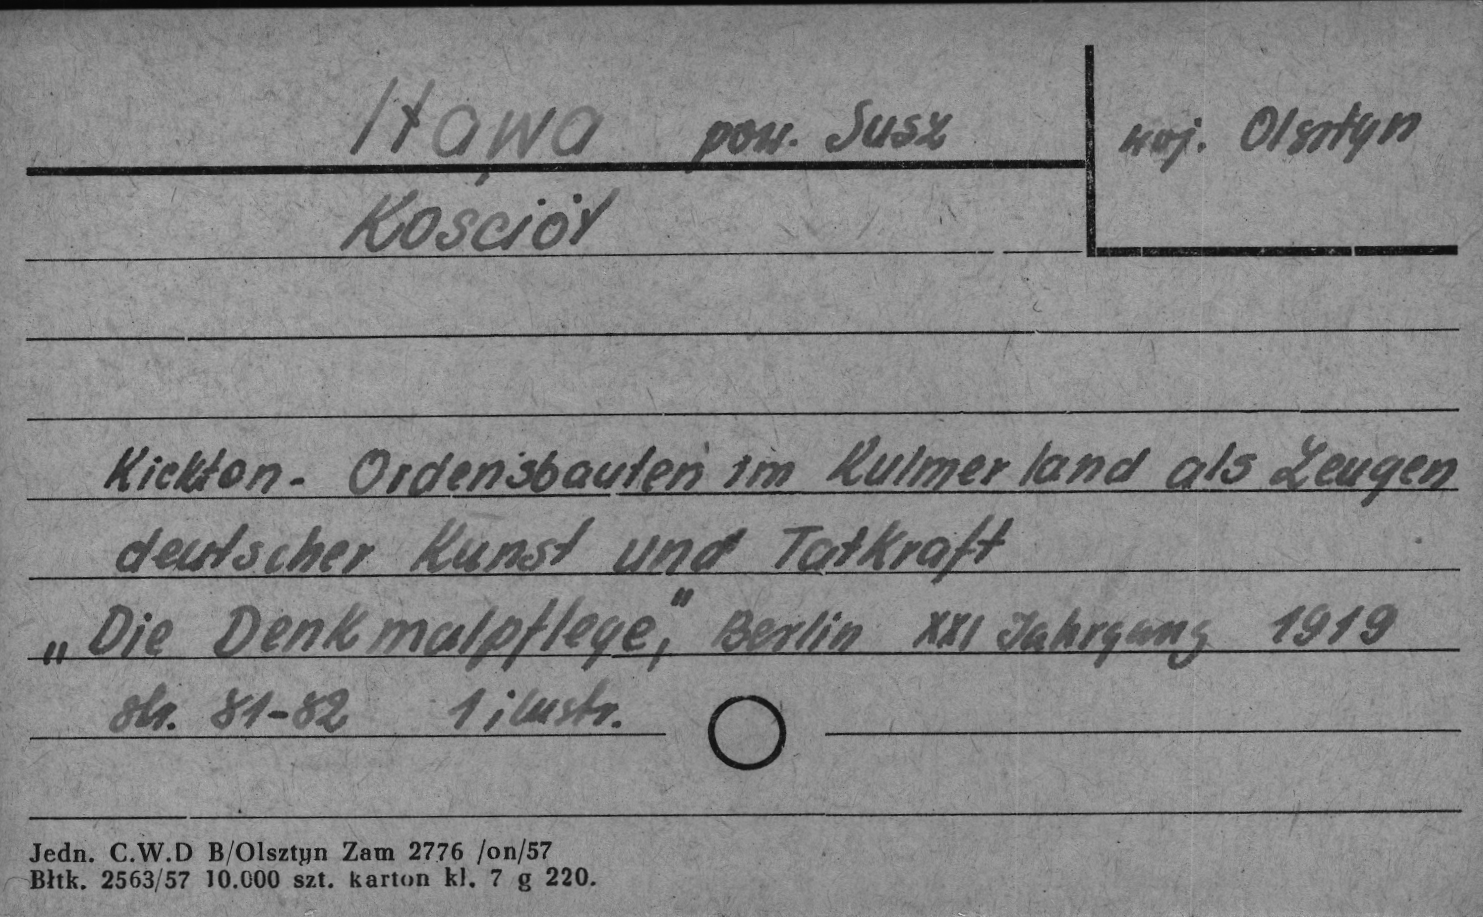 Iława pow. Susz woj. Olsztyn
Kościół
Kickton - Ordensbauten im Kulmerland als Zeugen
deutscher Kunst und Tatkraft
„Die Denkmalpflege," Berlin XXI Jahrgang 1919
str. 81-82 1 ilustr.
Jedn. C.W.D B/Olsztyn Zam 2776 /on/57
Błtk. 2563/57 10.000 szt. karton kl. 7 g 220.